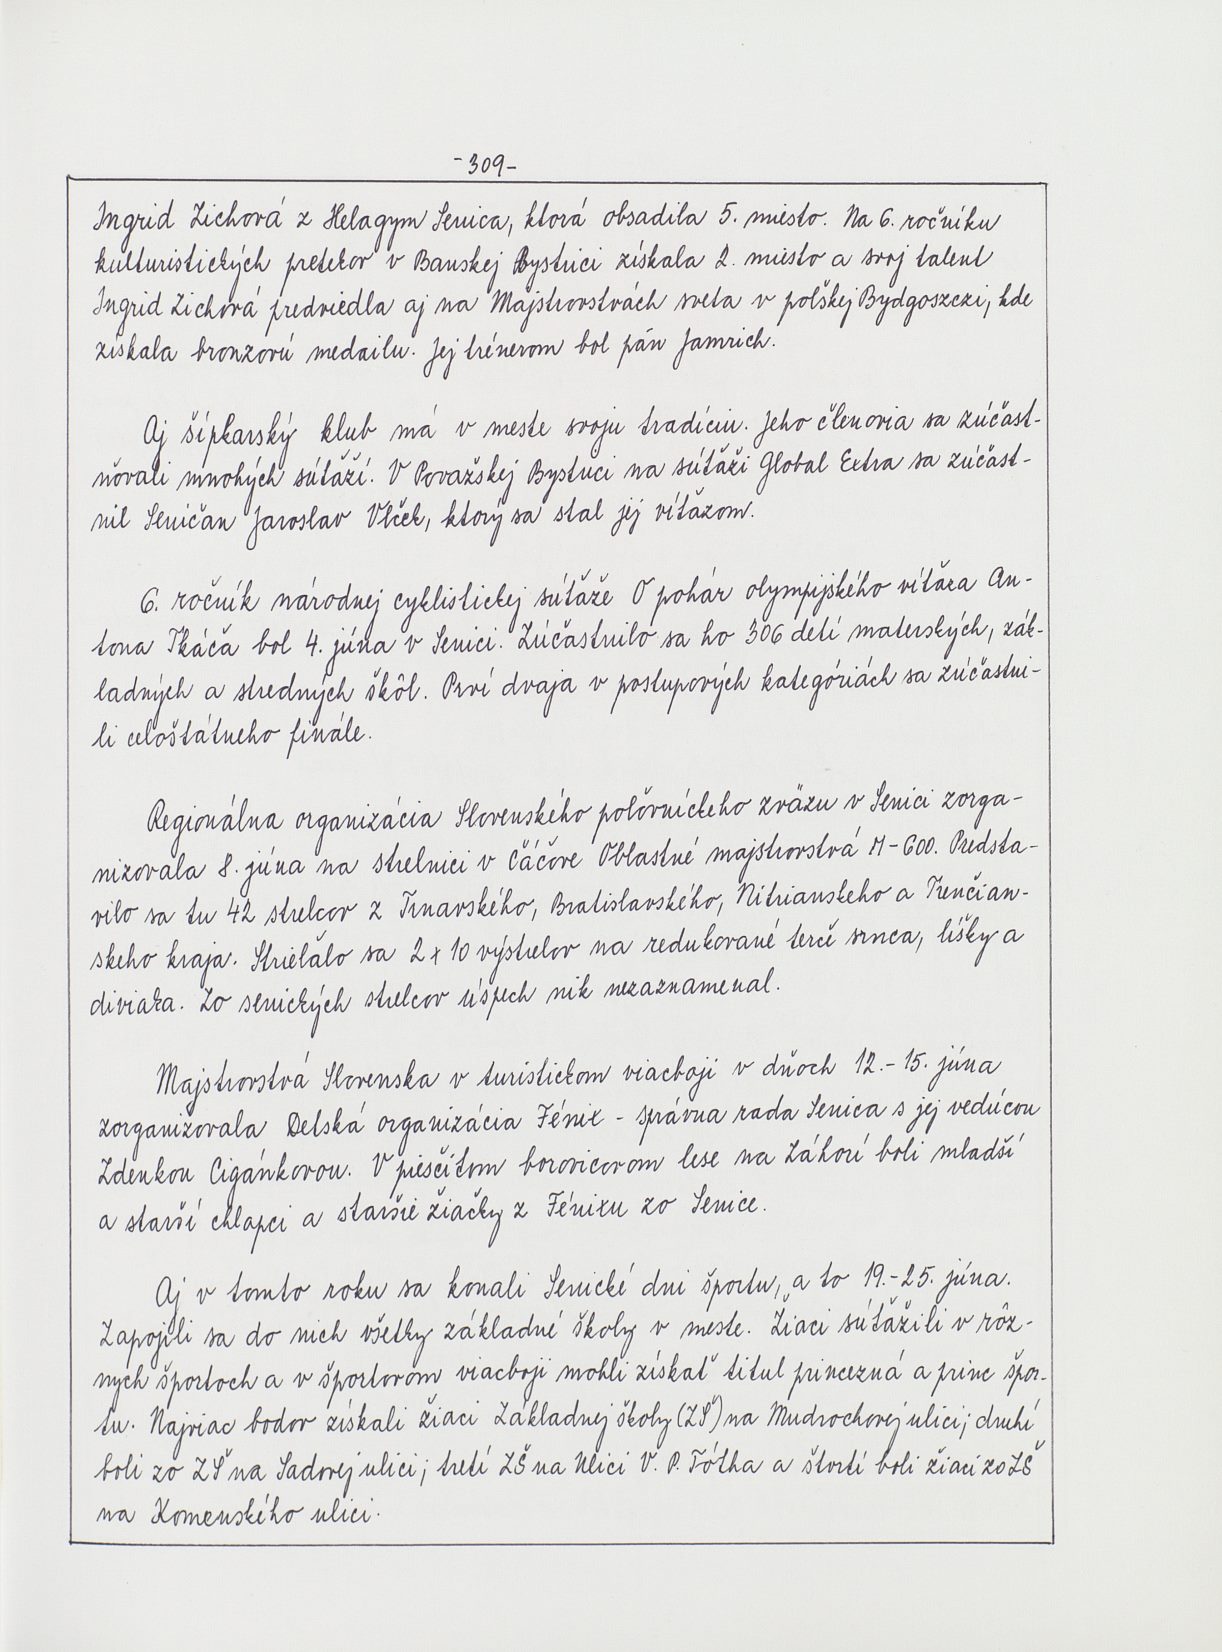 -309-
Ingrid Zichová z Helagym Senica, ktorá obsadila 5. miesto. Na 6. ročníku
kulturistických pretekov v Banskej Bystrici získala 2. miesto a svoj talent
Ingrid Zichová predviedla aj na Majstrovstvách sveta v poľskej Bydgoszczi, kde
získala bronzovú medailu. Jej trénerom bol pán Jamrich.
Aj šípkarský klub má v meste svoju tradíciu. Jeho členovia sa zúčast-
ňovali mnohých súťaží. V Považskej Bystrici na súťaži Global Extra sa zúčast-
nil Seničan Jaroslav Vlček, ktorý sa stal jej víťazom.
6. ročník národnej cyklistickej súťaže O pohár olympijského víťaza An-
tona Tkáča bol 4. júna v Senici. Zúčastnilo sa ho 306 detí materských, zák-
ladných a stredných škôl. Prví dvaja v postupových kategóriách sa zúčastni-
li celoštátneho finále.
Regionálna organizácia Slovenského poľovníckeho zväzu v Senici zorga-
nizovala 8. júna na strelnici v Čáčove Oblastné majstrovstvá M-600. Predsta-
vilo sa tu 42 strelcov z Trnavského, Bratislavského, Nitrianskeho a Trenčian-
skeho kraja. Strieľalo sa 2 x 10 výstrelov na redukované terče srnca, líšky a
diviaka. Zo senických strelcov úspech nik nezaznamenal.
Majstrovstvá Slovenska v turistickom viacboji v dňoch 12.-15. júna
zorganizovala Detská organizácia Fénix - správna rada Senica s jej vedúcou
Zdenkou Cigánkovou. V piesčitom borovicovom lese na Záhorí boli mladší
a starší chlapci a staršie žiačky z Fénixu zo Senice.
Aj v tomto roku sa konali Senické dni športu, a to 19.-25. júna.
Zapojili sa do nich všetky základné školy v meste. Žiaci súťažili v rôz-
nych športoch a v športovom viacboji mohli získať titul princezná a princ špor-
tu. Najviac bodov získali žiaci Základnej školy (ZŠ) na Mudrochovej ulici; druhí
boli zo ZŠ na Sadovej ulici; tretí ZŠ na Ulici V. P. Tótha a štvrtí boli žiaci zo ZŠ
na Komenského ulici.